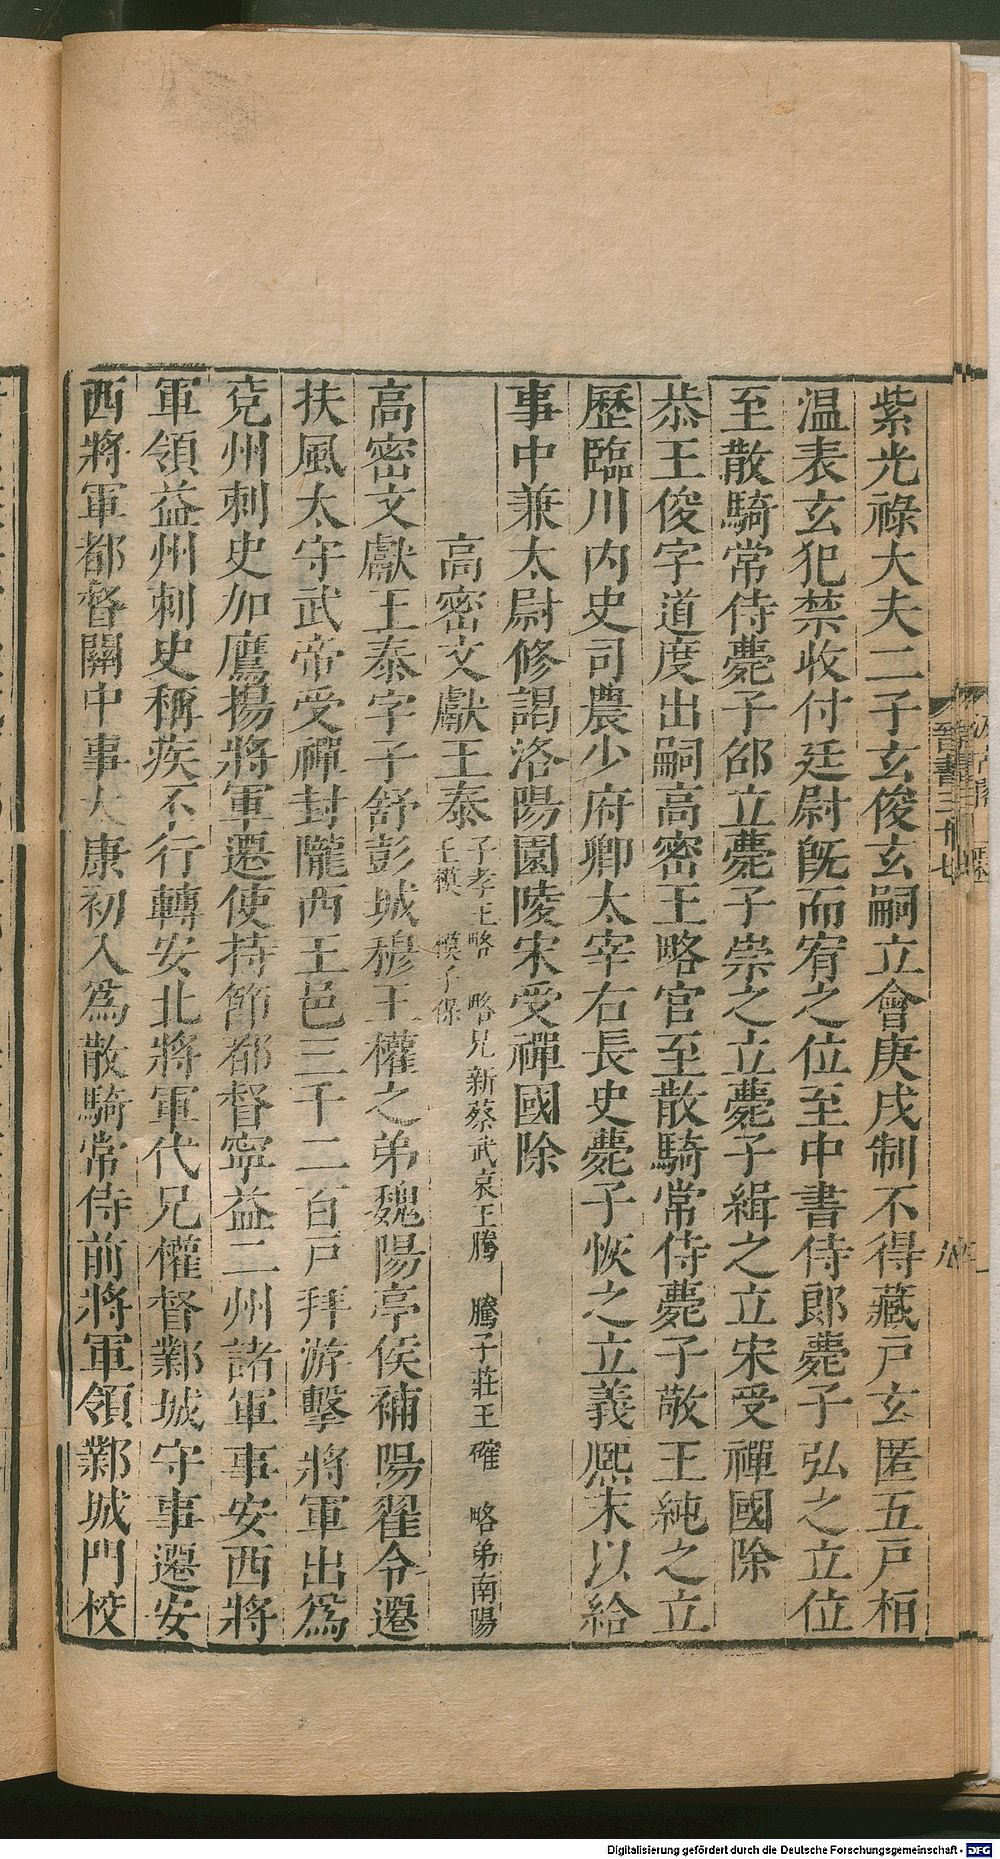 紫光祿大夫二子玄俊玄嗣立會庚戌制不得藏戸玄匿五戸桓
温表玄犯禁收付廷尉旣而宥之位至中書侍郎薨子弘之立位
至散騎常侍薨子邵立薨子崇之立薨子緝之立宋受禪國除
恭王俊字道度出嗣高密王略官至散騎常侍薨子敬王純之立
歷臨川内史司農少府卿太宰右長史薨子恢之立義熙末以給
事中兼太尉修謁洛陽園陵宋受禪國除
高密文獻王泰 子孝王略 略兄新蔡武哀王騰 騰子莊王確 略弟南陽
王模 模子保
高密文獻王泰字子舒彭城穆王權之弟魏陽亭侯補陽翟令遷
扶風太守武帝受禪封隴西王邑三千二百戸拜游擊將軍出爲
兗州刺史加鷹揚將軍遷使持節都督寧益二州諸軍事安西將
軍領益州刺史稱疾不行轉安北將軍代兄權督鄴城守事遷安
西將軍都督關中事太康初入爲散騎常侍前將軍領鄴城門校
晉書三十七
八
Digitalisierung gefördert durch die Deutsche Forschungsgemeinschaft - DFG